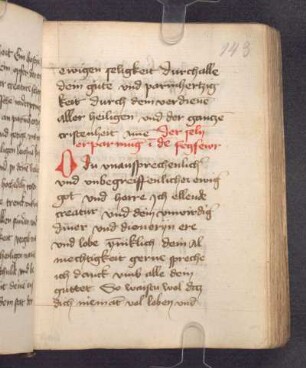 143
ewigen seligkeit durch alle
dem gute vnd parmhertzig
keit durch dem verdiene
aller heiligen vnd der gancze
cristenheit
erparmug i de fegfewr
O Du vnaussprechenlicher
vnd vnbegreiffenlicher ewig
got vnd herre ich ellende
creatur vnd dein vnwirdig
diner vnd dioneryn ere
vnd lobe ynniklich dein al
mechtigkeit gerne spreche
ich danck vmb alle dein
guttet So waistu wol dz
dich niemāt vol loben vnd